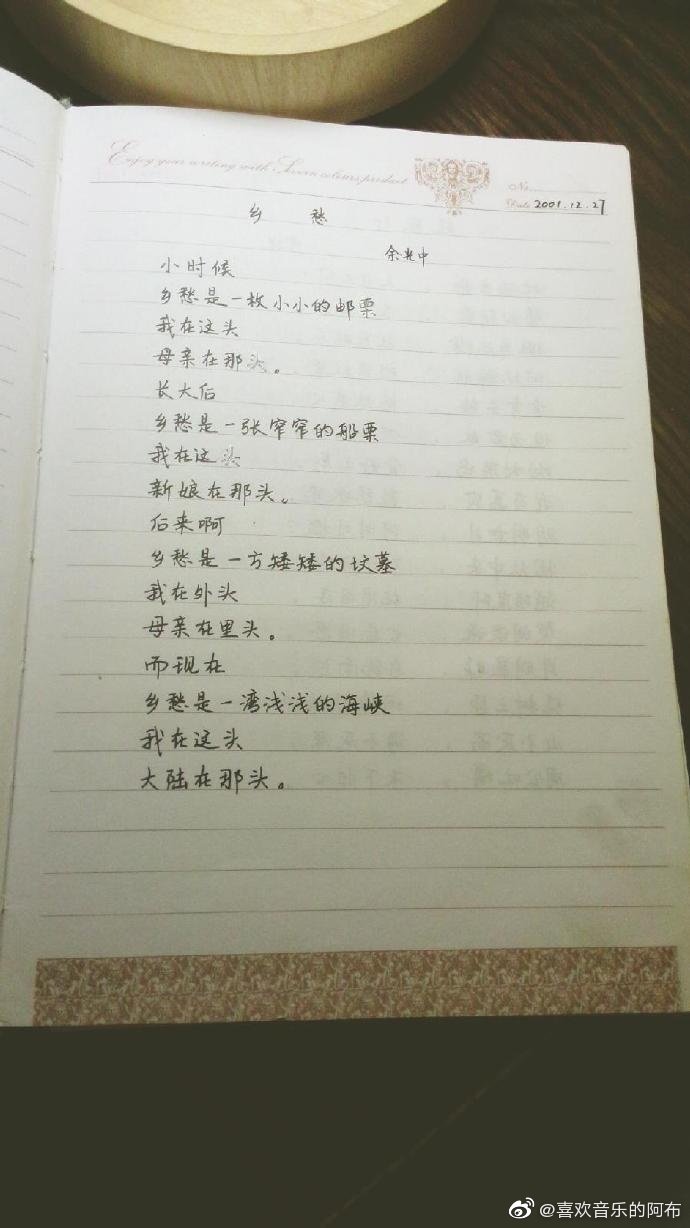 Enjoy your writing with Seven colours product
No
Date 2001.12.27
乡 愁
余光中
小时候
乡愁是一枚小小的邮票
我在这头
母亲在那头。
长大后
乡愁是一张窄窄的船票
我在这头
新娘在那头。
后来啊
乡愁是一方矮矮的坟墓
我在外头
母亲在里头。
而现在
乡愁是一湾浅浅的海峡
我在这头
大陆在那头。
@喜欢音乐的阿布